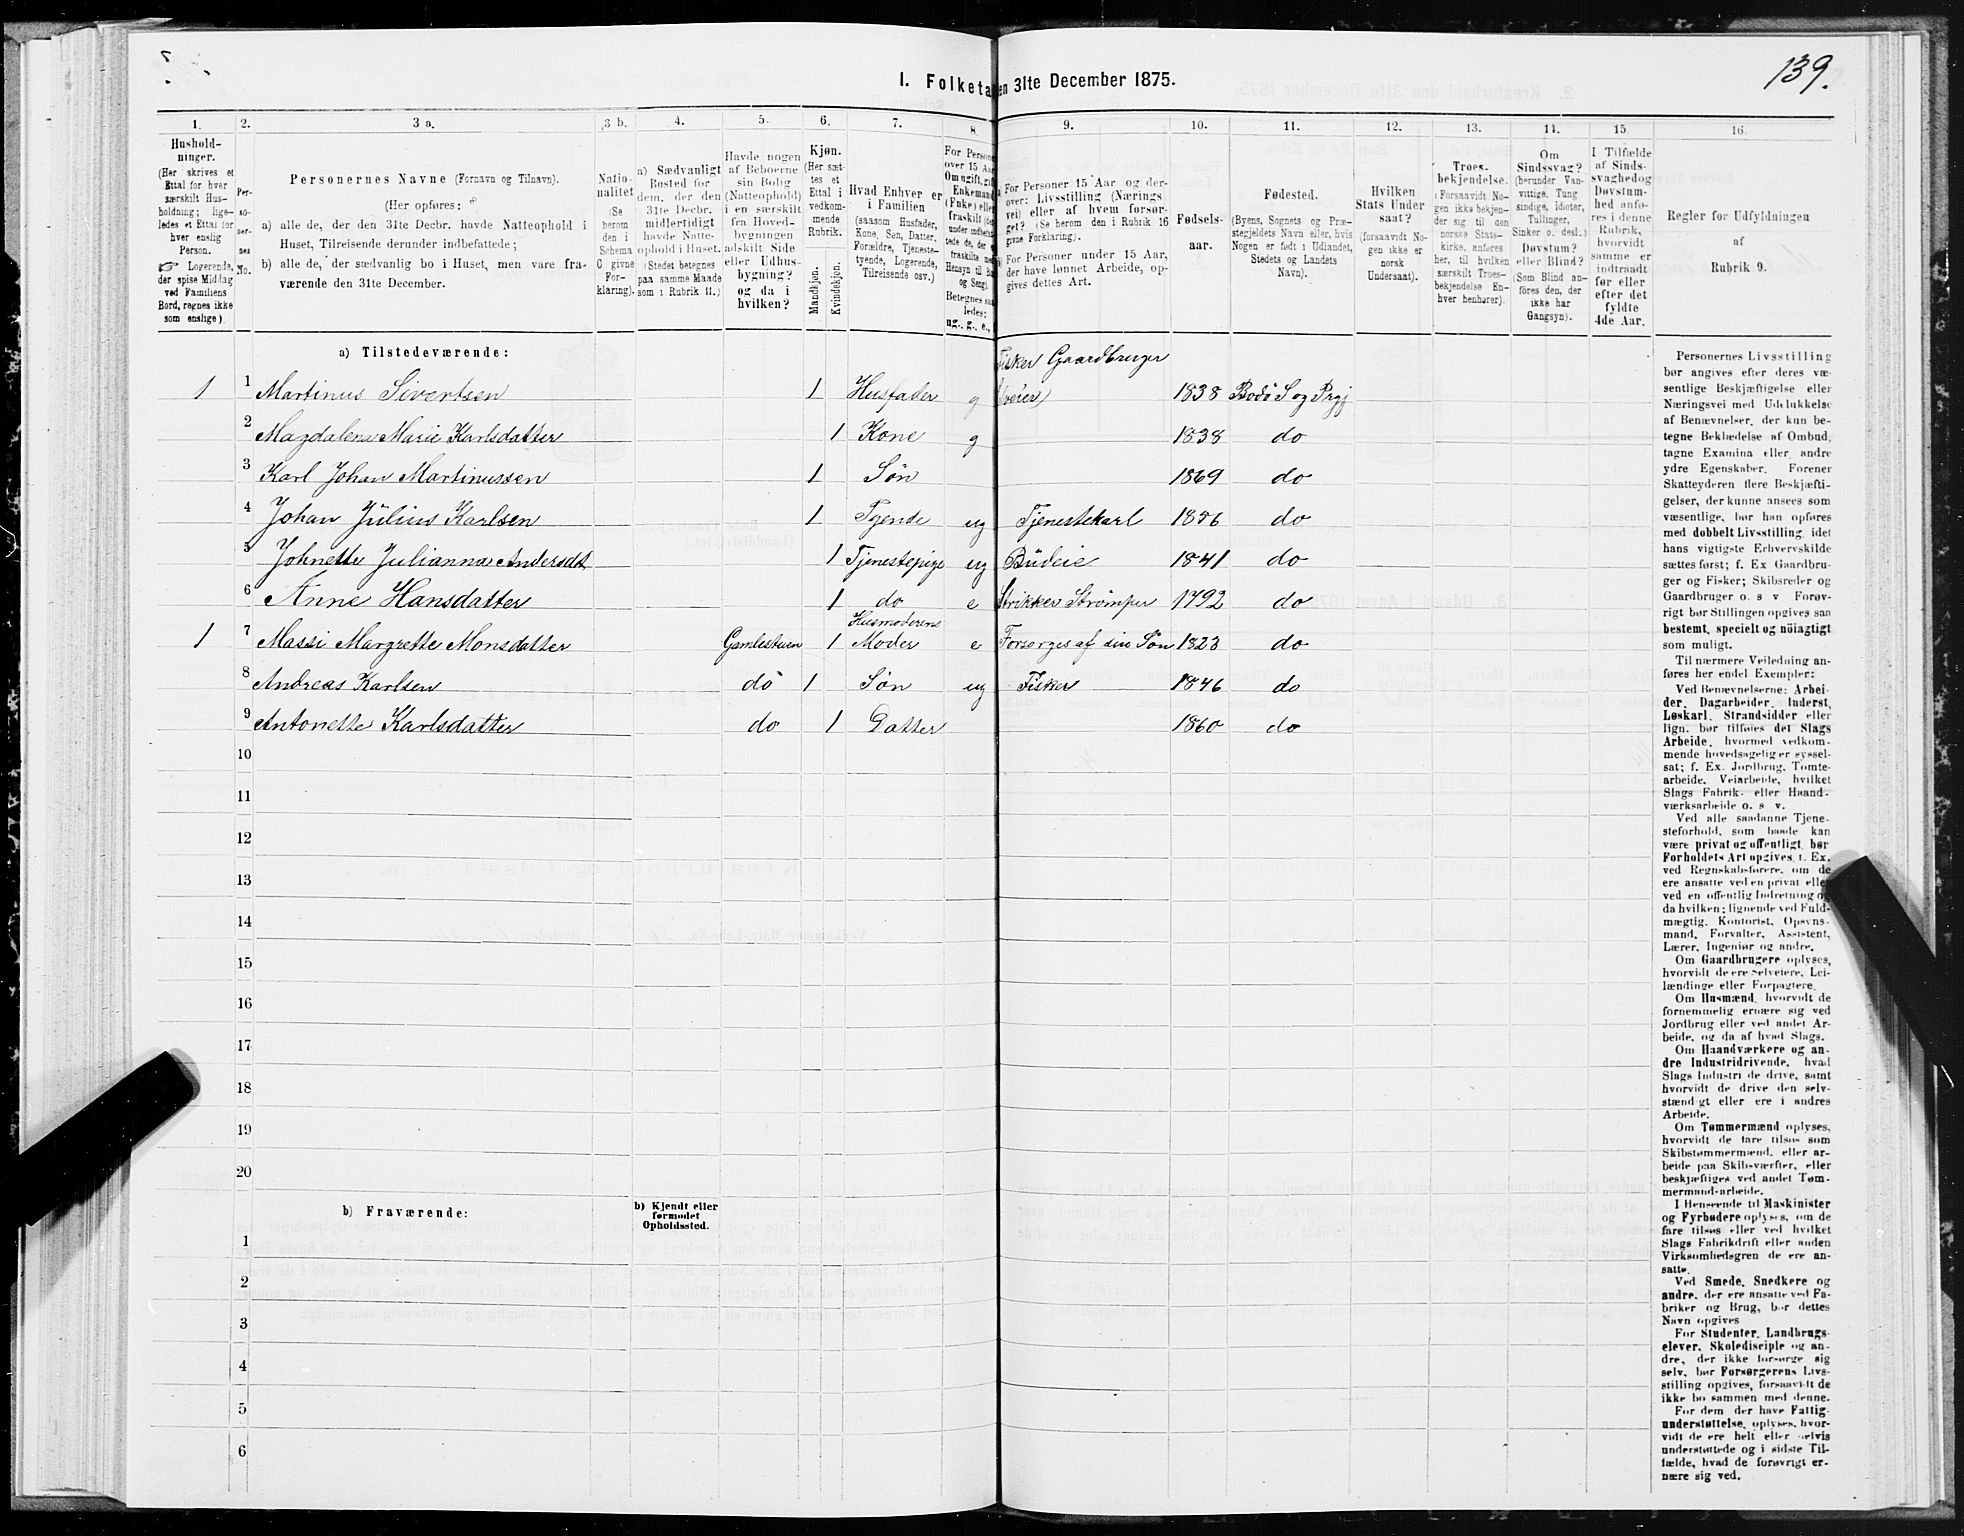 139.
I. Folketa en 31te December 1875.
1. 2. 3 a. 3 b. 4. 5. 6. 7. 8. 9. 10. 11. 12. 13. 14. 15 16.
Hushold-
ninger.
(Her skrives et
Ettal for hver
særskilt Hus-
holdning; lige-
ledes et Ettal for
hver enslig
Person.
☞ Logerende,
der spise Middag
ved Familiens
Bord, regnes ikke
som enslige).
Per-
so-
ner-
nes
No.
Personernes Navne (Fornavn og Tilnavn).
(Her opføres:
a) alle de, der den 31te Decbr. havde Natteophold i
Huset, Tilreisende derunder indbefattede;
b) alle de, der sædvanlig bo i Huset, men vare fra-
værende den 31te December.
Natio-
nalitet
(Se
herom
den i
Schema
C givne
For-
klaring).
a) Sædvanligt
Bosted for
dem, der den
31te Decbr.
midlertidigt
havde Natte-
ophold i Huset.
(Stedet betegnes
paa samme Maade
som i Rubrik 11.)
Havde nogen
af Beboerne
sin Bolig
(Natteophold)
i en særskilt
fra Hoved-
bygningen
adskilt Side
eller Udhus-
bygning?
og da i
hvilken?
Kjøn.
(Her sæt-
tes et
Ettal i
vedkom-
mende
Rubrik.
Mandkjøn.
Kvindekjøn.
Hvad Enhver er
i Familien
(saasom Husfader,
Kone, Søn, Datter,
Forældre, Tjeneste-
tyende, Logerende,
Tilreisende osv.)
For Persone
over 15 Aa
Om ugift, gif
Enkemand
(Enke) elle
fraskilt (de
Betegnes saa
ledes:
ug., g., e.,
For Personer 15 Aar og der-
over: Livsstilling (Nærings
vei) eller af hvem forsør-
get? (Se herom den i Rubrik 16
givne Forklaring).
For Personer under 15 Aar,
der have lønnet Arbeide, op-
gives dettes Art.
Fødsels-
aar.
Fødested.
(Byens, Sognets og Præ-
stegjeldets Navn eller, hvis
Nogen er født i Udlandet,
Stedets og Landets
Navn).
Hvilken
Stats Under
saat?
(forsaavidt No-
gen ikke er
norsk
Undersaat).
Troes-
bekjendelse.
(Forsaavidt No-
gen ikke bekjen-
der sig til den
norske Stats-
kirke, anføres
her, til hvilken
særskilt Troes-
bekjendelse En-
hver henhører).
Om
Sindssvag?
(herunder Van-
vittige, Tung
sindige, Idioter,
Tullinger,
Sinker o. desl.)
Døvstum?
eller Blind?
(Som Blind an-
føres den, der
ikke har
Gangsyn).
I Tilfælde
af Sinds-
svaghed og
Døvstum-
hed anfø-
res i denne
Rubrik,
hvorvidt
samme er
indtraadt
før eller
efter det
fyldte
4de Aar.
Regler for Udfyldningen
af
Rubrik 9.
a) Tilstedeværende:
Fisker Gaardbruger
1 1 Martinus Sivertsen 1 Husfader g 1838 Bodö S og Prgj
2 Magdalena Marie Karlsdatter 1 Kone g 1838 do
3 Karl Johan Martinussen 1 Søn 1869 do
4 Johan Julius Karlsen 1 Tyende ug Tjenestekarl 1856 do
5 Johnette Julianna Andersdt 1 Tjenestepige ug Büdeie 1841 do
6 Anne Hansdatter 1 do e Strikker Strømper 1792 do
Husmoderens
1 7 Massi Margrette Monsdatter Gamlestuen 1 Moder e Forsørges af sin Søn 1823 do
8 Andreas Karlsen do 1 Søn ug Fisker 1846 do
9 Antonette Karlsdatter do 1 Datter 1860 do
10
11
12
13
14
15
16
17
18
19
20
b) Fraværende:
b) Kjendt eller
formodet
Opholdssted.
1
2
3
4
5
6
Personernes Livsstilling
bør angives efter deres væ-
sentlige Beskjæftigelse eller
Næringsvei med Udelukkelse
af Benævnelser, der kun be-
tegne Beklædelse af Ombud,
tagne Examina eller andre
ydre Egenskaber. Forener
Skatteyderen flere Beskjæfti-
gelser, der kunne ansees som
væsentlige, bør han opføres
med dobbelt Livsstilling, idet
hans vigtigste Erhvervskilde
sættes først; f. Ex Gaardbru-
ger og Fisker; Skibsreder og
Gaardbruger o. s v Forøv-
rigt bør Stillingen opgives saa
bestemt, specielt og nöiagtigt
som muligt.
Til nærmere Veiledning an-
føres her endel Exempler:
Ved Benævnelserne: Arbei-
der, Dagarbeider, Inderst,
Løskarl, Strandsidder eller
lign. bør tilføies det Slags
Arbeide, hvormed vedkom-
mende hovedsagelig er syssel-
sat; f. Ex. Jordbrug, Tomte-
arbeide, Veiarbeide, hvilket
Slags Fabrik- eller Haand-
værksarbeide o. s v.
Ved alle saadanne Tjene-
steforhold, som baade kan
være privat og offentligt, bør
Forholdets Art opgives, f. Ex.
ved Regnskabsførere, om de
ere ansatte ved en privat elle
ved en offentlig Indretning og
da hvilken; lignende ved Fuld-
mægtig, Kontorist, Opsyns-
mand, Forvalter, Assistent,
Lærer, Ingeniør og andre.
Om Gaardbrugere oplyses,
hvorvidt de ere Selveiere, Lei-
lændinge eller Forpagtere.
Om Husmænd, hvorvidt de
fornemmelig ernære sig ved
Jordbrug eller ved andet Ar-
beide, og da af hvad Slags.
Om Haandværkere og an-
dre Industridrivende, hvad
Slags Industri de drive, samt
hvorvidt de drive den selv-
stændigt eller ere i andres
Arbeide.
Om Tømmermænd oplyses,
hvorvidt de fare tilsøs som
Skibstømmermænd, eller ar-
beide paa Skibsværfter, eller
beskjæftiges ved andet Tøm-
mermand-arbeide.
I Henseende til Maskinister
og Fyrbødere oplyses, om de
fare tilsøs eller ved hvilket
Slags Fabrikdrift eller anden
Virksomhedsgren de ere an-
satte.
Ved Smede, Snedkere og
andre, der ere ansatte ved Fa-
briker og Brug, bør dettes
Navn opgives
For Studenter, Landbrugs-
elever, Skoledisciple og an-
dre, der ikke forsørge sig
selv, bør Forsørgerens Livs-
stilling opgives, forsaavidt de
ikke bo sammen med denne.
For dem der have Fattig-
understøttelse, oplyses, hvor-
vidt de ere helt eller delvis
understøttede og i sidste Til-
fælde, hvad de forøvrigt er-
nære sig ved.